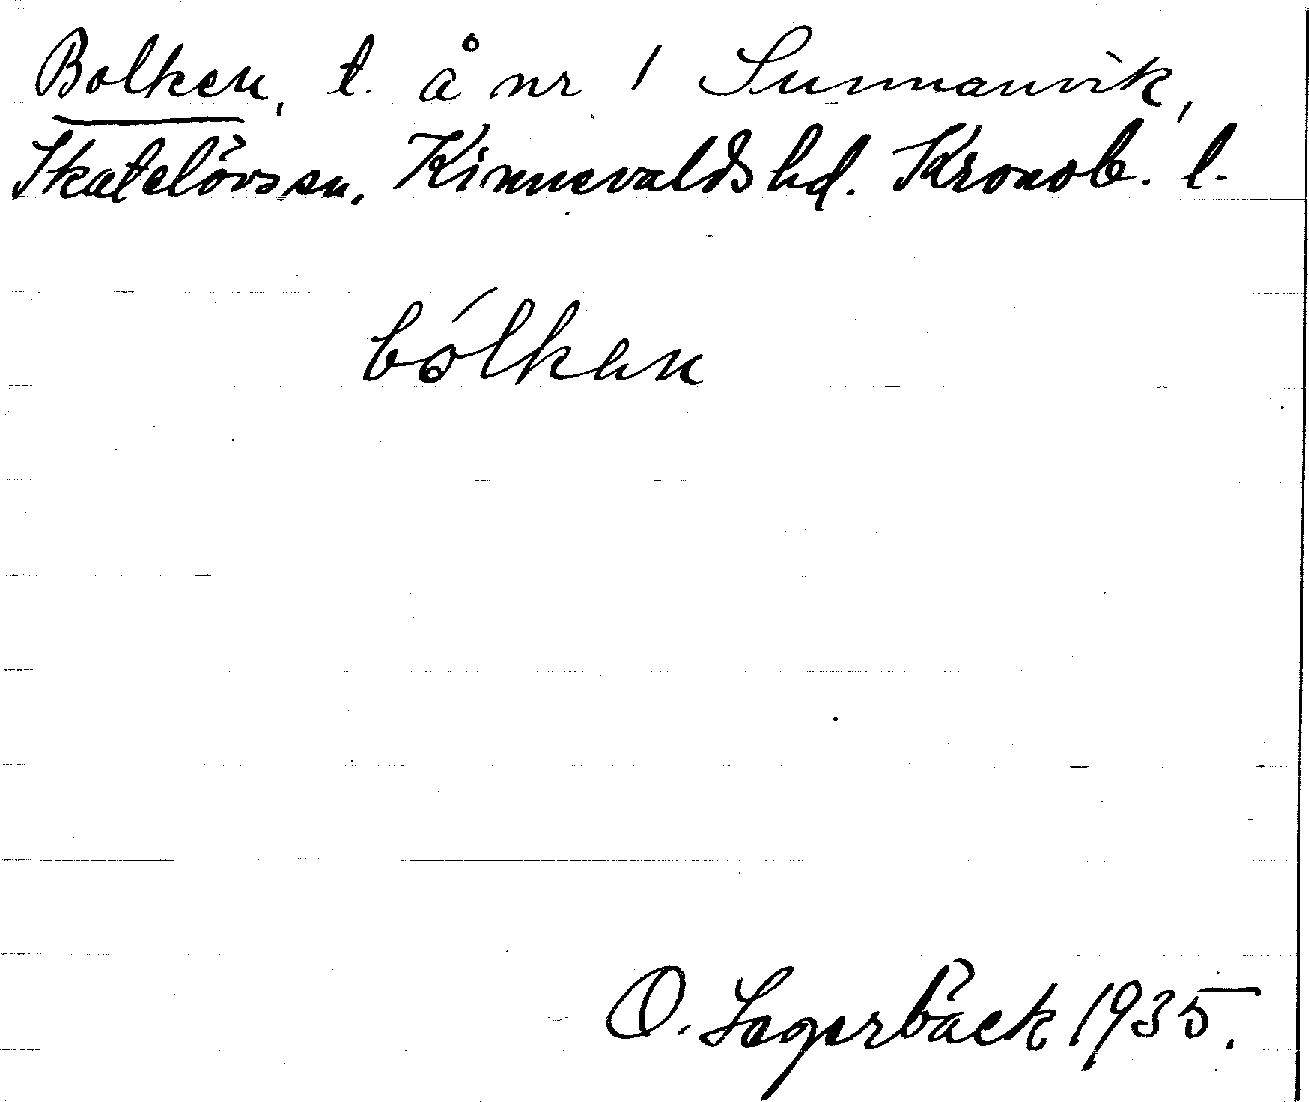 Bolken, t. å nr 1 Sunnanvik,
Skatelövs sn, Kinnevalds hd. Kronob. l.
bólkan
O. Lagerbäck 1935.